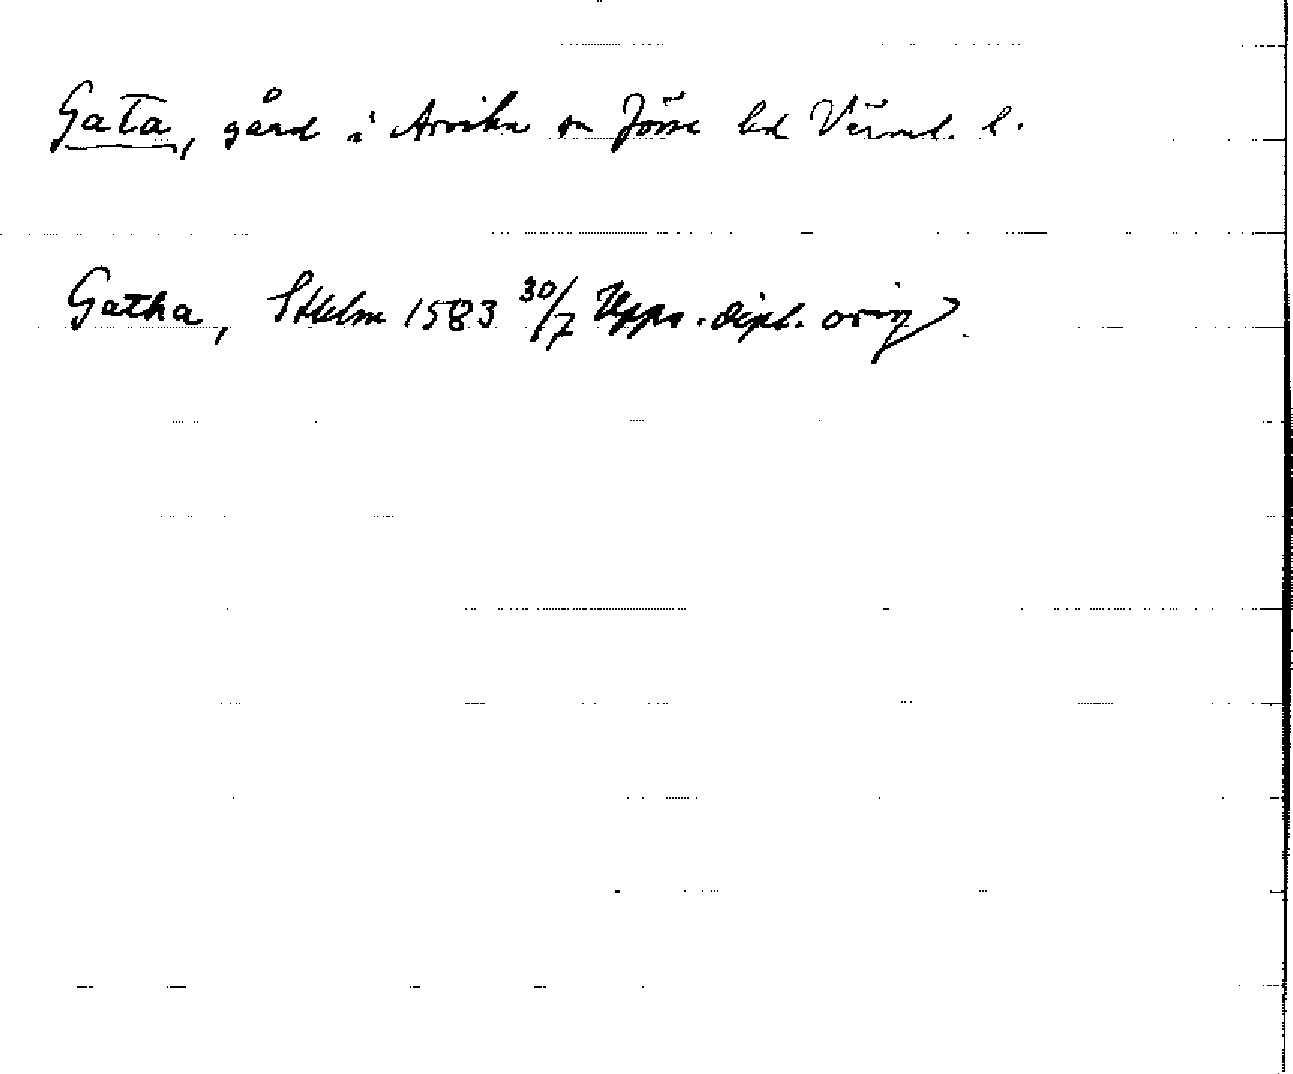 Gata, gård i Arvika sn Jösse hd Värml. l.
Gatha, Sthlm 1583 30/7 Upps. dipl. orig.